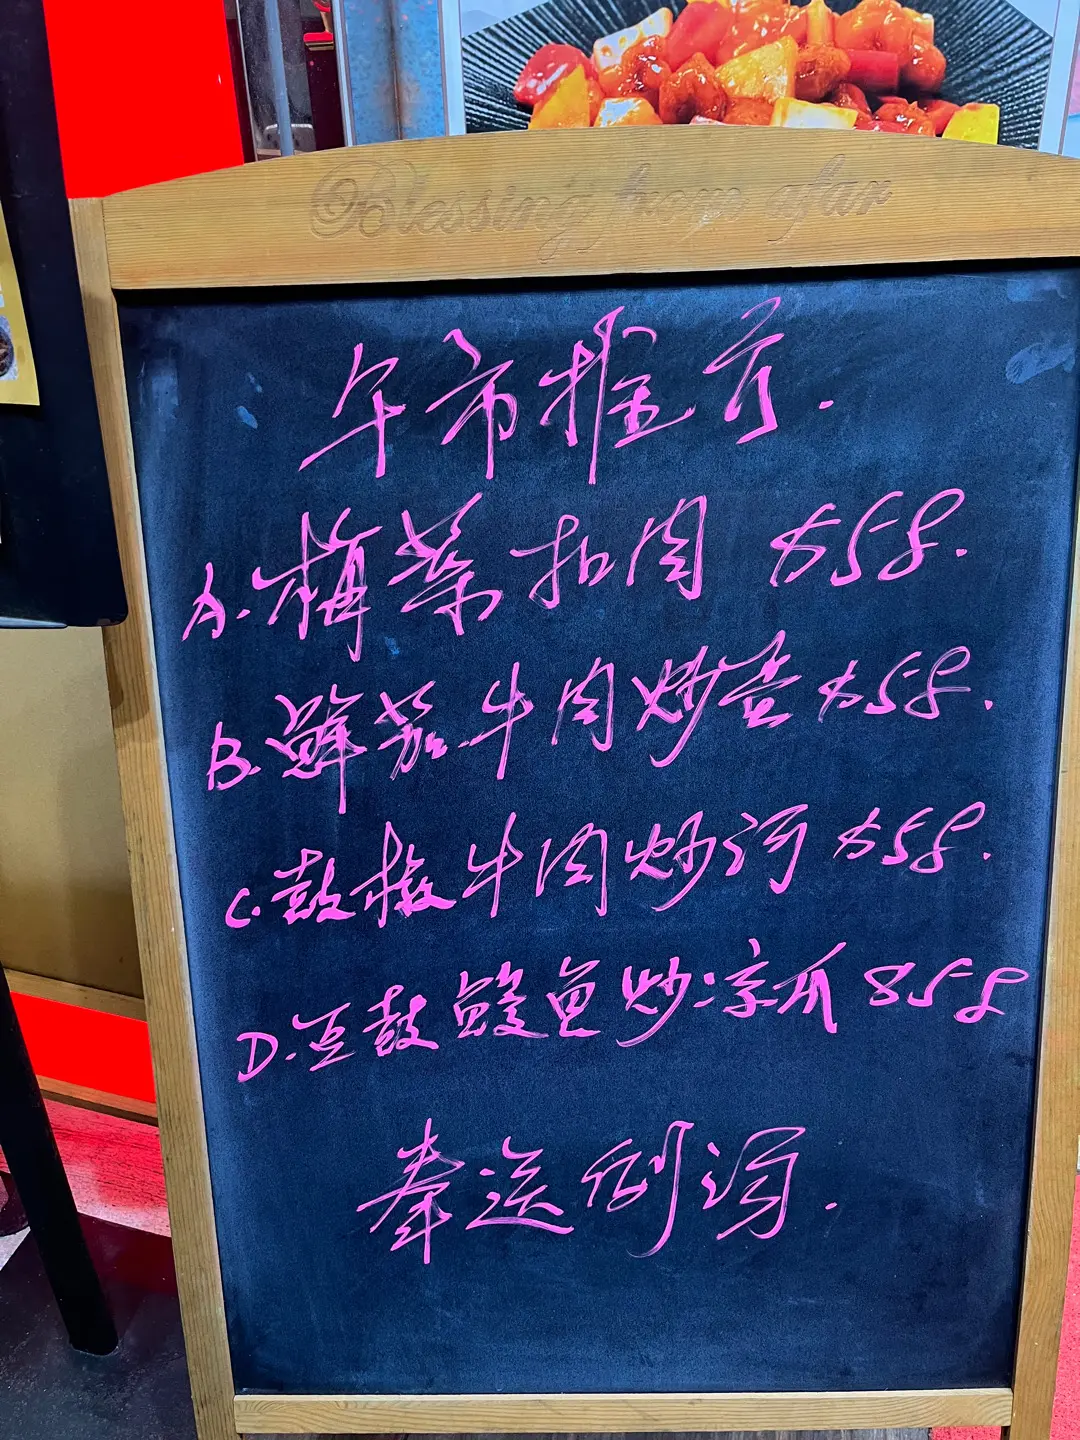 Blessing from afar
午市推介.
A.梅菜扣肉 $58.
B.鮮茄牛肉炒蛋 $58.
C.鼓椒牛肉炒河 $58.
D.豆鼓鯪魚炒凉瓜 $58
奉送例湯.